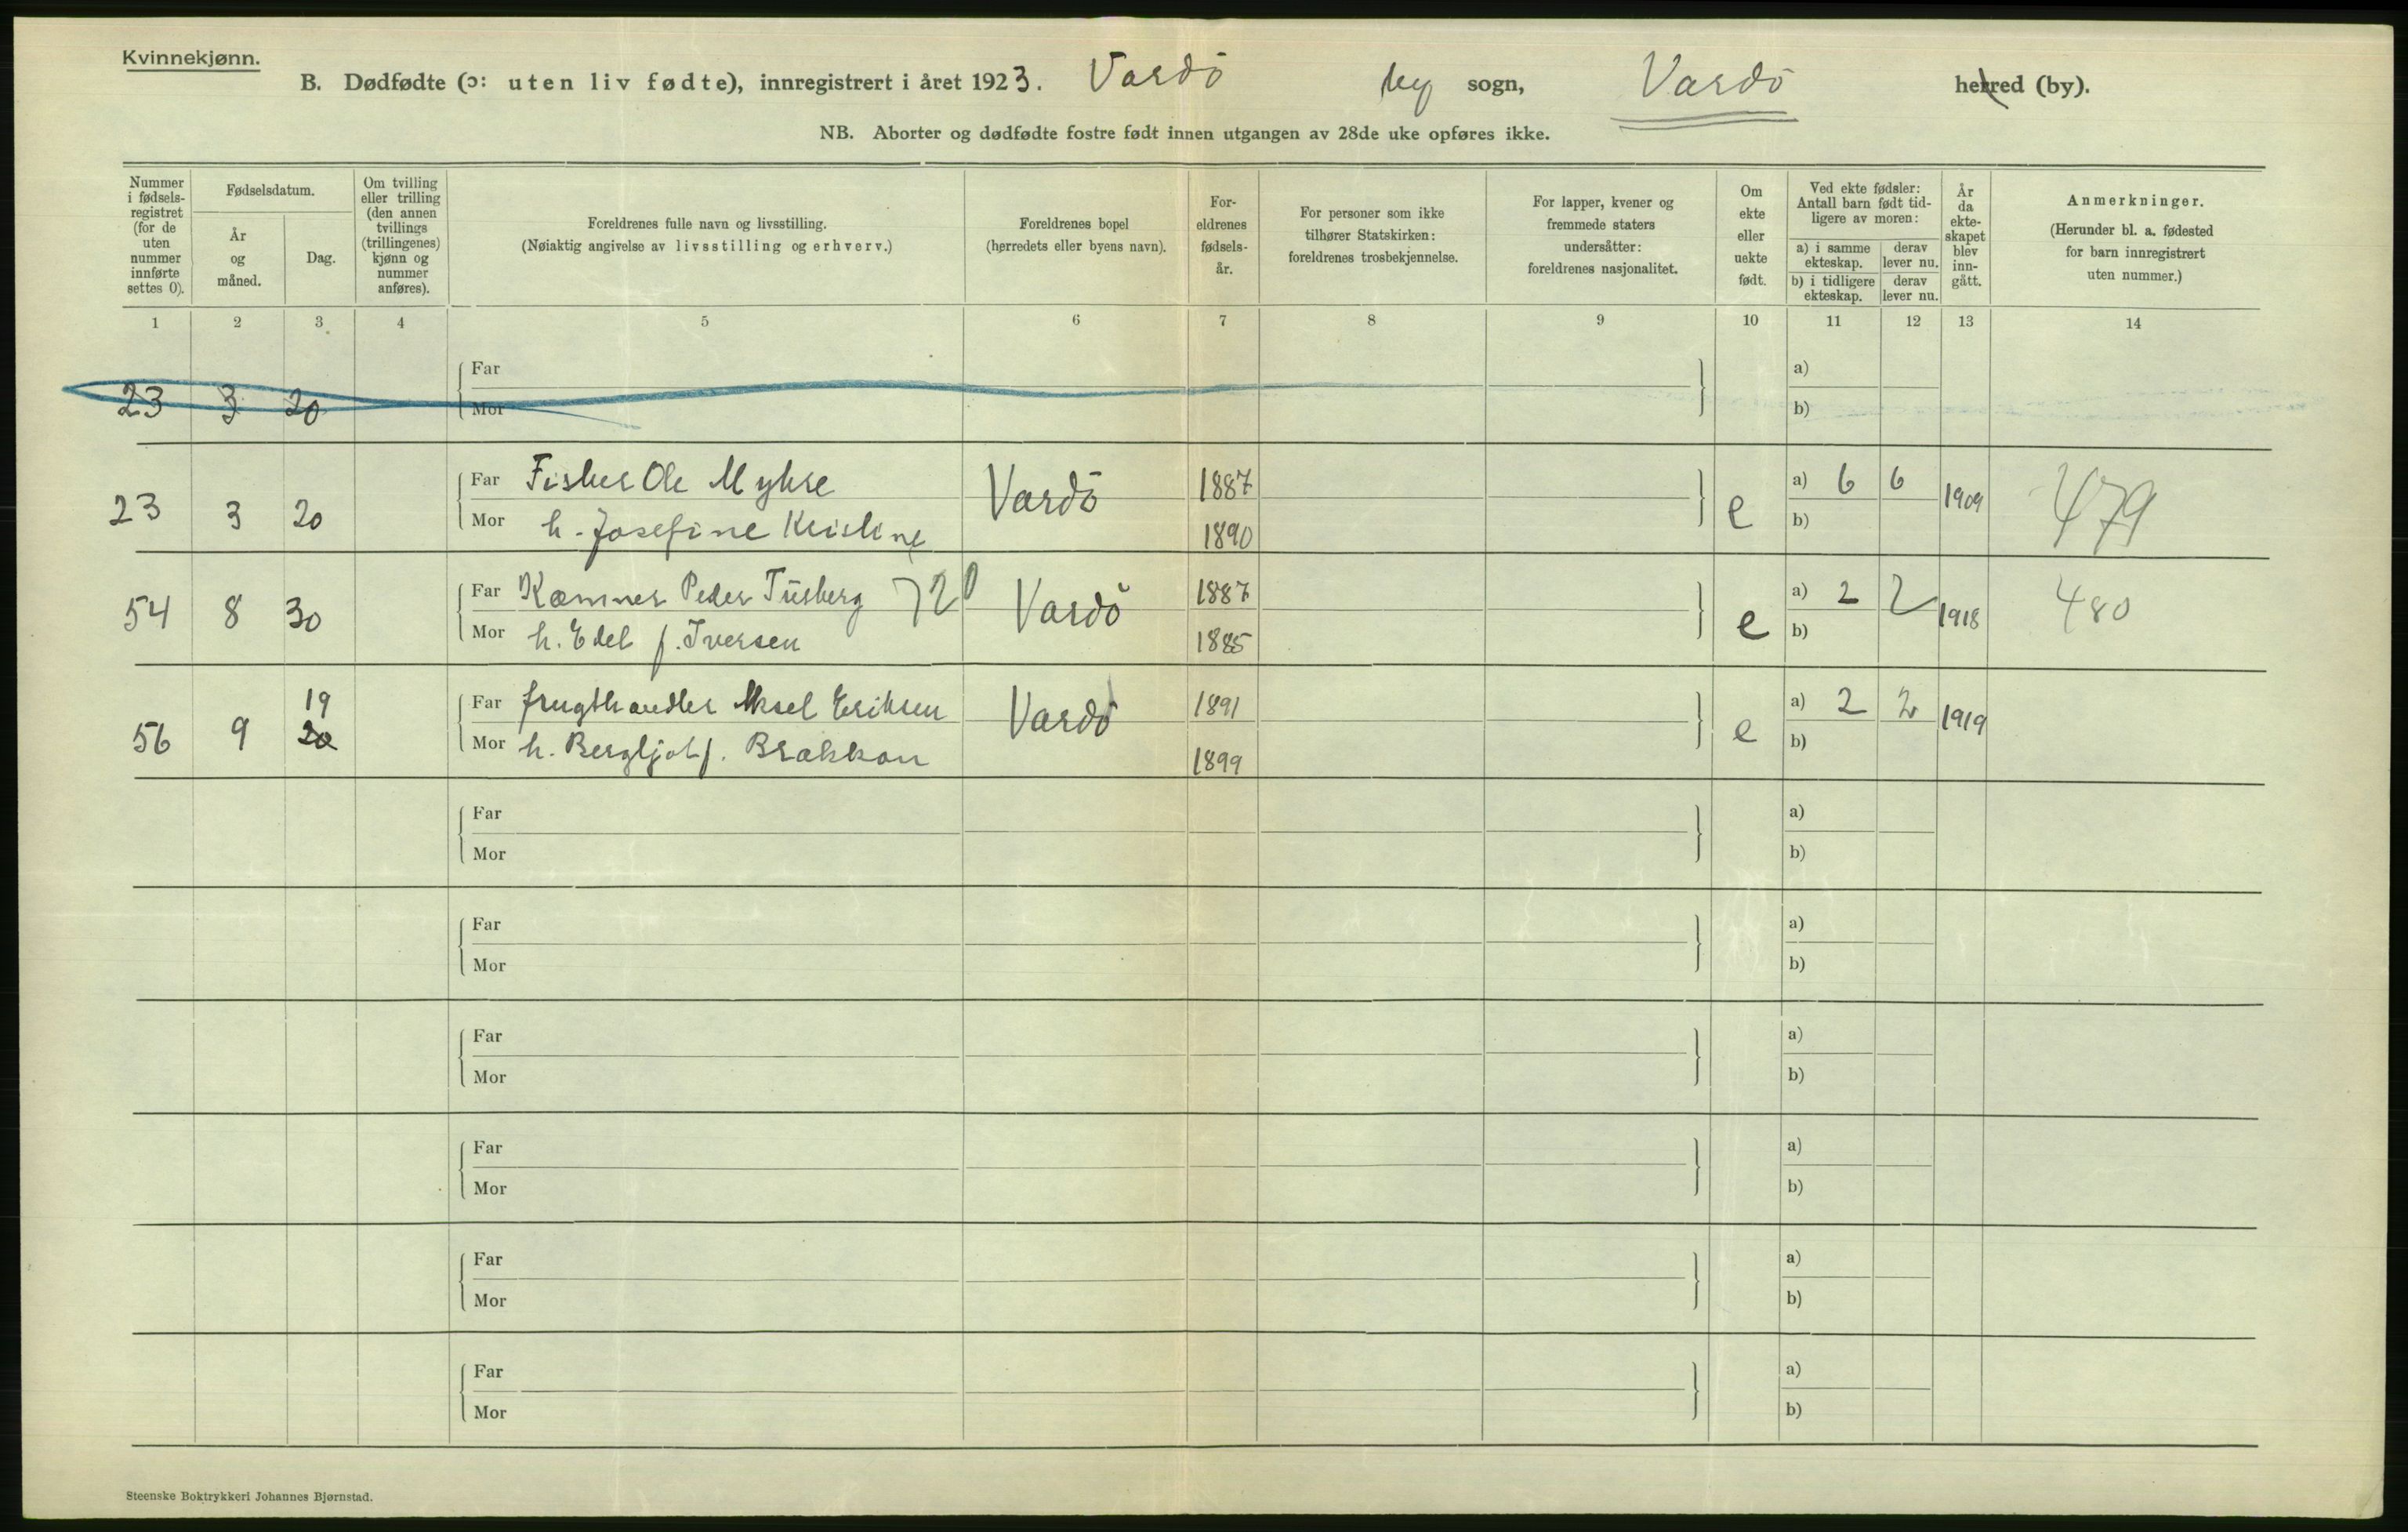 Kvinnekjønn.
B. Dødfødte (ɔ: uten liv fødte), innregistrert i året 1923. Vardö by sogn, Vardö herred (by).
NB. Aborter og dødfødte fostre født innen utgangen av 28de uke opføres ikke.
Nummer i fødsels-registret (for de uten nummer innførte settes 0).
Fødselsdatum.
År og måned.
Dag.
Om tvilling eller trilling (den annen tvillings (trillingenes) kjønn og nummer anføres).
Foreldrenes fulle navn og livsstilling.
(Nøiaktig angivelse av livsstilling og erhverv.)
Foreldrenes bopel
(herredets eller byens navn).
For-eldrenes fødsels-år.
For personer som ikke tilhører Statskirken: foreldrenes trosbekjennelse.
For lapper, kvener og fremmede staters undersåtter: foreldrenes nasjonalitet.
Om ekte eller uekte født.
Ved ekte fødsler: Antall barn født tid-ligere av moren:
a) i samme ekteskap.
derav lever nu.
b) i tidligere ekteskap.
derav lever nu.
År da ekte-skapet blev inn-gått.
Anmerkninger.
(Herunder bl. a. fødested for barn innregistrert uten nummer.)
1 2 3 4 5 6 7 8 9 10 11 12 13 14
Far a)
23 3 20 Mor b)
Far Fisker Ole Myhre Vardö 1887 a) 6 6 1909 479
23 3 20 Mor h. Josefine Kristine 1890 e b)
Far Kæmner Peder 720 Vardö 1887 a) 2 2 1918 480
54 8 30 Mor h. Edel f. Iversen 1885 e b)
19
Far frugthandler Aksel Eriksen Vardö 1891 a) 2 2 1919
56 9 20 Mor h. Bergljot f. Brækkan 1899 e b)
Far a)
Mor b)
Far a)
Mor b)
Far a)
Mor b)
Far a)
Mor b)
Far a)
Mor b)
Far a)
Mor b)
Steenske Boktrykkeri Johannes Bjørnstad.